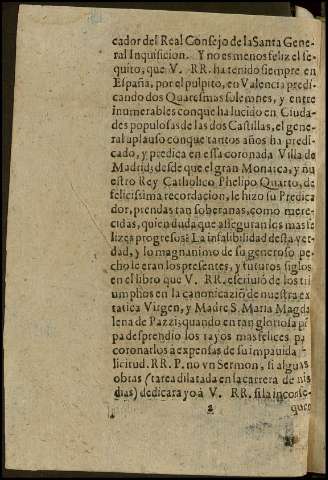 cador del Real Consejo de la Santa Gene-
ral Inquisicion. Y no es menos feliz el se-
quito, que V. RR. ha tenido siempre en
España, por el pulpito, en Valencia predi-
cando dos Quaresmas solemnes, y entre
inumerables con que ha lucido en Ciuda-
des populosas de las dos Castillas, el gene-
ral aplauso con que tantos años ha predi-
cado, y predica en essa coronada Villa de
Madrid; desde que el gran Monarca, y ñu
estro Rey Catholico Phelipo Quarto, de
felicissima recordacion, le hizo su Predica
dor, prendas tan soberanas, como mere-
cidas, quien duda que asseguran los mas fe
lizes progresos? La infalibilidad desta ver-
dad, y lo magnanimo de su generoso pe-
cho leeran los presentes, y futuros siglos
en el libro que V. RR. escriuiò de los tri
umphos en la canonizaciõ de nuestra ex
tatica Virgen, y Madre S. Maria Magda
lena de Pazzi; quando en tan gloriosa pō
pa desprendio los rayos mas felices pa
coronarlos a expensas de su impauida
licitud. RR. P. no vn Sermon, si algunas
obras (tarea dilatada en la carrera de mis
dias) dedicara yo à V. RR. si la inconse-
quen